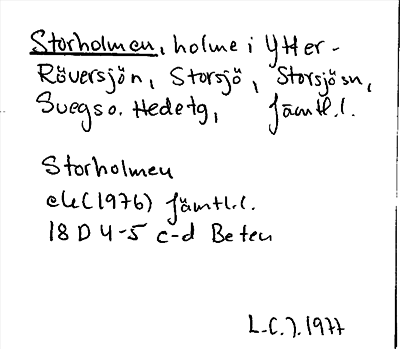 Storholmen, holme i Ytter-
Röversjön, Storsjö, Storsjö sn,
Svegs o. Hedetg, Jämtl.l.
Storholmen
ek (1976) Jämtl.l.
18 D 4-5 c-d Beten
L.C.J. 1977